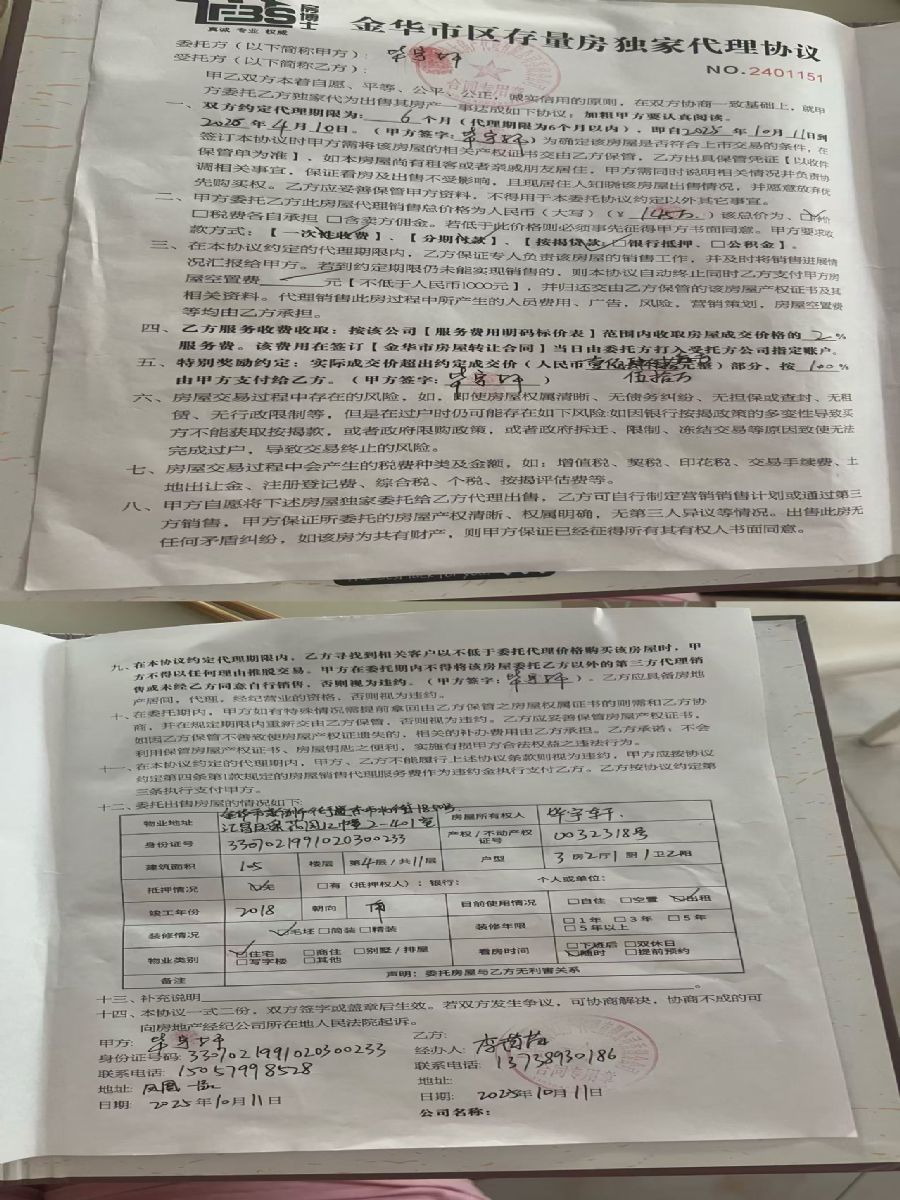 TFBS 房博士
真诚 专业 权威
金华市区存量房独家代理协议
NO.2401151
委托方（以下简称甲方）：
受托方（以下简称乙方）：
合同专用章
甲乙双方本着自愿、平等、公平、公正、诚实信用的原则，在双方协商一致基础上，就甲
方委托乙方独家代为出售其房产一事达成如下协议；加粗甲方要认真阅读。
一、双方约定代理期限为：6个月（代理期限为6个月以内），即自2025年10月11日到
2025年4月10日。（甲方签字：）为确定该房屋是否符合上市交易的条件，在
签订本协议时甲方需将该房屋的相关产权证书交由乙方保管，乙方出具保管凭证【以收件
保管单为准】，如本房屋尚有租客或者亲戚朋友居住，甲方需同时说明相关情况并负责协
调相关事宜，保证看房及出售不受影响，且现居住人知晓该房屋出售情况，并愿意放弃优
先购买权。乙方应妥善保管甲方资料，不得用于本委托协议约定以外其它事宜。
二、甲方委托乙方此房屋代理销售总价格为人民币（大写）（￥145万）该总价为、
□税费各自承担 □含卖方佣金。若低于此价格则必须事先征得甲方书面同意。甲方要求收
款方式：【一次性收费】、【分期付款】、【按揭贷款：□银行抵押、□公积金】。
三、在本协议约定的代理期限内，乙方保证专人负责该房屋的销售工作，并及时将销售进展情
况汇报给甲方。若到约定期限仍未能实现销售的，则本协议自动终止同时乙方支付甲方房
屋空置费 元【不低于人民币1000元】，并归还交由乙方保管的该房屋产权证书及其
相关资料。代理销售此房过程中所产生的人员费用、广告，风险，营销策划，房屋空置费
等均由乙方承担。
四、乙方服务收费收取：按该公司【服务费用明码标价表】范围内收取房屋成交价格的2%
服务费。该费用在签订【金华市房屋转让合同】当日由委托方打入受托方公司指定账户。
五、特别奖励约定：实际成交价超出约定成交价（人民币 元整）部分，按100%
伍拾万
由甲方支付给乙方。（甲方签字：）
六、房屋交易过程中存在的风险，如，即使房屋权属清晰、无债务纠纷、无担保或查封、无租
赁、无行政限制等，但是在过户时仍可能存在如下风险：如因银行按揭政策的多变性导致买
方不能获取按揭款，或者政府限购政策，或者政府拆迁、限制、冻结交易等原因致使无法
完成过户，导致交易终止的风险。
七、房屋交易过程中会产生的税费种类及金额，如：增值税、契税、印花税、交易手续费、土
地出让金、注册登记费、综合税、个税、按揭评估费等。
八、甲方自愿将下述房屋独家委托给乙方代理出售，乙方可自行制定营销销售计划或通过第三
方销售，甲方保证所委托的房屋产权清晰、权属明确，无第三人异议等情况。出售此房无
任何矛盾纠纷，如该房为共有财产，则甲方保证已经征得所有其有权人书面同意。
九、在本协议约定代理期限内，乙方寻找到相关客户以不低于委托代理价格购买该房屋时，甲
方不得以任何理由推脱交易。甲方在委托期内不得将该房屋委托乙方以外的第三方代理销
售或未经乙方同意自行销售，否则视为违约。（甲方签字：）。乙方应具备房地
产居间，代理，经纪营业的资格，否则视为违约。
十、在委托期内，甲方如有特殊情况需提前拿回由乙方保管之房屋权属证书的则需和乙方协
商，并在规定期限内重新交由乙方保管，否则视为违约。乙方应妥善保管房屋产权证书，
如因乙方保管不善致使房屋产权证遗失的，相关的补办费用由乙方承担。乙方承诺：不会
利用保管房屋产权证书、房屋钥匙之便利，实施有损甲方合法权益之违法行为。
十一、在本协议约定的代理期内，甲方、乙方不能履行上述协议条款则视为违约，甲方应按协议
约定第四条第1款规定的房屋销售代理服务费作为违约金执行支付乙方。乙方按协议约定第
三条执行支付甲方。
十二、委托出售房屋的情况如下：
物业地址 2-401室 房屋所有权人
身份证号 3307021991020300233 产权/不动产权证号 0032318号
建筑面积 105 楼层 第4层/共11层 户型 3房2厅1厨1卫2阳
抵押情况 □无 □有（抵押权人）：银行： 个人或单位：
竣工年份 2018 朝向 南 目前使用情况 □自住 □空置 □出租
装修情况 □毛坯 □简装 □精装 装修年限 □1年 □3年 □5年 □5年以上
物业类别 □住宅 □商住 □别墅/排屋 □写字楼 □其他 看房时间 □下班后 □双休日 □随时 □提前预约
备注 声明：委托房屋与乙方无利害关系
十三、补充说明
十四、本协议一式二份，双方签字或盖章后生效。若双方发生争议，可协商解决，协商不成的可
向房地产经纪公司所在地人民法院起诉。
甲方：
身份证号码：3307021991020300233
联系电话：15057998528
地址：
日期：2025年10月11日
乙方：
经办人：
联系电话：13738930186
地址：
日期：2025年10月11日
公司名称：
合同专用章